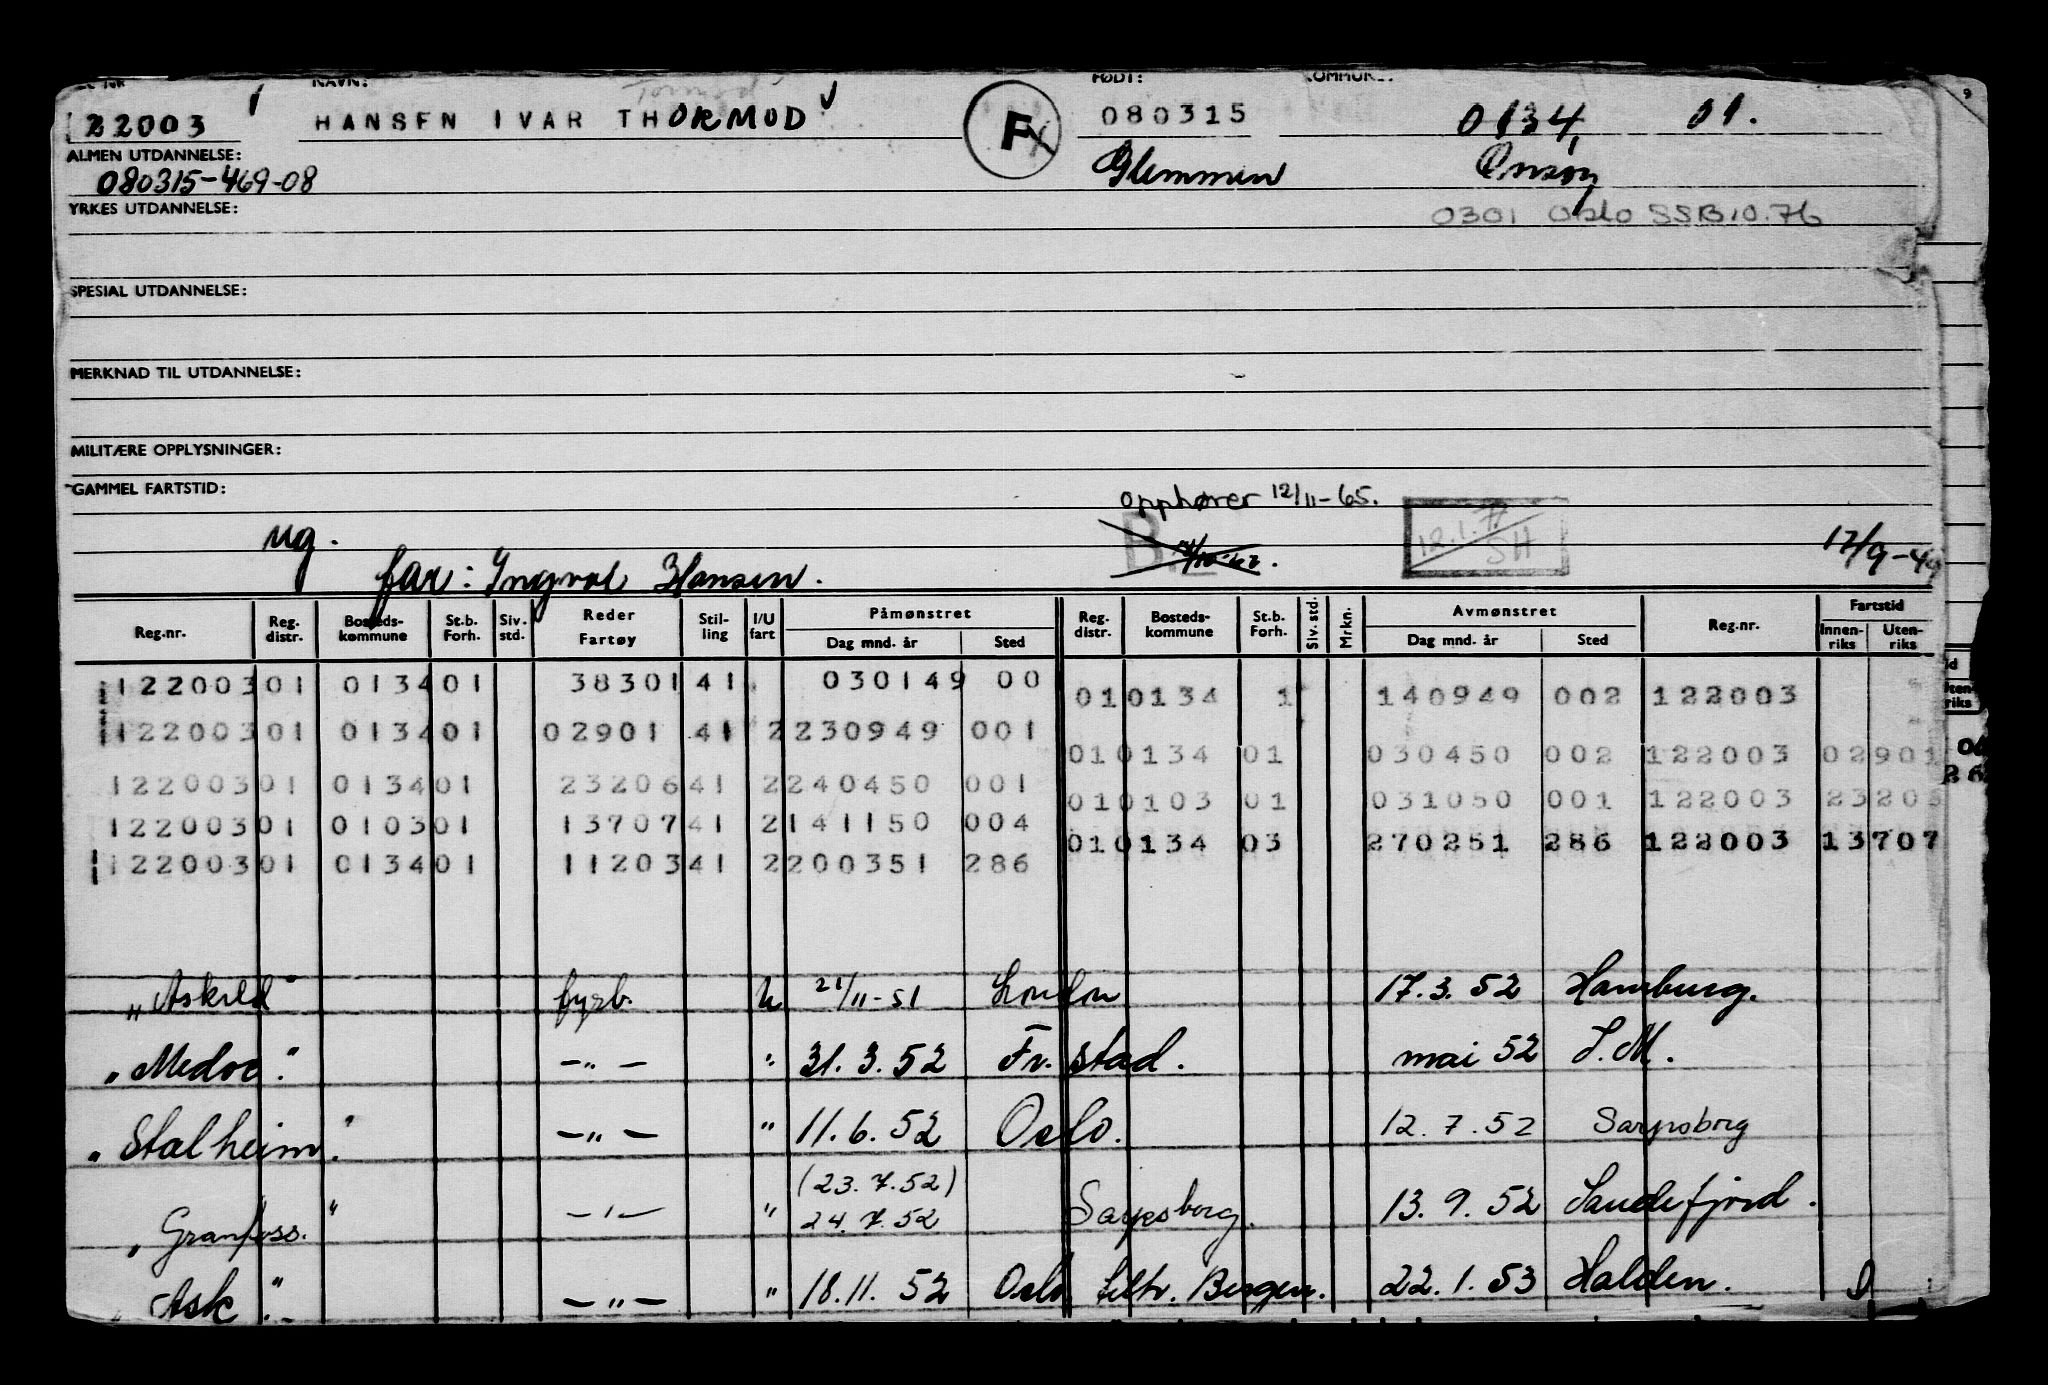 NAVN: Tormod FØDT: KOMMUNE:
122003 HANSEN IVAR THORMOD F 080315 0134 01.
ALMEN UTDANNELSE: Glemmen Onsøy
080315-469-08
YRKES UTDANNELSE: 0301 Oslo SSB 10.76
SPESIAL UTDANNELSE:
MERKNAD TIL UTDANNELSE:
MILITÆRE OPPLYSNINGER:
GAMMEL FARTSTID: opphører 12/11-65.
ug. 12.1.77 SH 17/9-49
far: Ingval Hansen.
Reg.nr. Reg. distr. Bosteds-kommune St.b. Forh. Siv. std. Reder Fartøy Stil-ling I/U fart Påmønstret Dag mnd. år Sted Reg. distr. Bosteds-kommune St.b. Forh. Siv. std. Mrkn. Avmønstret Dag mnd. år Sted Reg.nr. Fartstid Innen-riks Uten-riks
122003 01 0134 01 38301 41 030149 00 01 0134 1 140949 002 122003
122003 01 0134 01 02901 41 2 230949 001 01 0134 01 030450 002 122003 02901
122003 01 0134 01 23206 41 2 240450 001 01 0103 01 031050 001 122003 2320
122003 01 0103 01 13707 41 2 141150 004 01 0134 03 270251 286 122003 13707
122003 01 0134 01 11203 41 2 200351 286
„Askild" fyrb. U 21/11-51 London 17.3.52 Hamburg.
„Medoc". -"- " 31.3.52 Fr.stad. mai 52 S.M.
„Stalheim". -"- " 11.6.52 Oslo. 12.7.52 Sarpsborg
„Granfoss." -"- " (23.7.52) 24.7.52 Sarpsborg. 13.9.52 Sandefjord.
„Ask". -"- " 18.11.52 Oslo Bergen. 22.1.53 Halden.